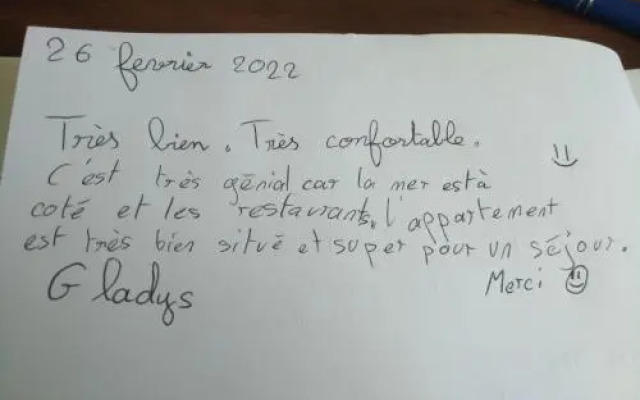 26 fevrier 2022
Très bien. Très confortable.
C'est très génial car la mer est à
coté et les restaurants, l'appartement
est très bien situé et super pour un séjour.
Gladys
Merci